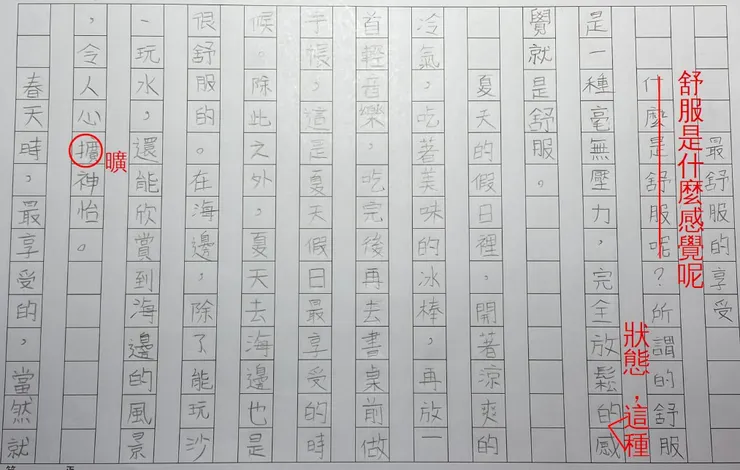 最舒服的享受
舒服是什麼感覺呢
什麼是舒服呢？所謂的舒服
狀態，這種
是一種毫無壓力，完全放鬆的感
覺就是舒服。
夏天的假日裡，開著涼爽的
冷氣，吃著美味的冰棒，再放一
首輕音樂，吃完後再去書桌前做
手帳，這是夏天假日最享受的時
候。除此之外，夏天去海邊也是
很舒服的。在海邊，除了能玩沙
、玩水，還能欣賞到海邊的風景
曠
，令人心擴神怡。
春天時，最享受的，當然就